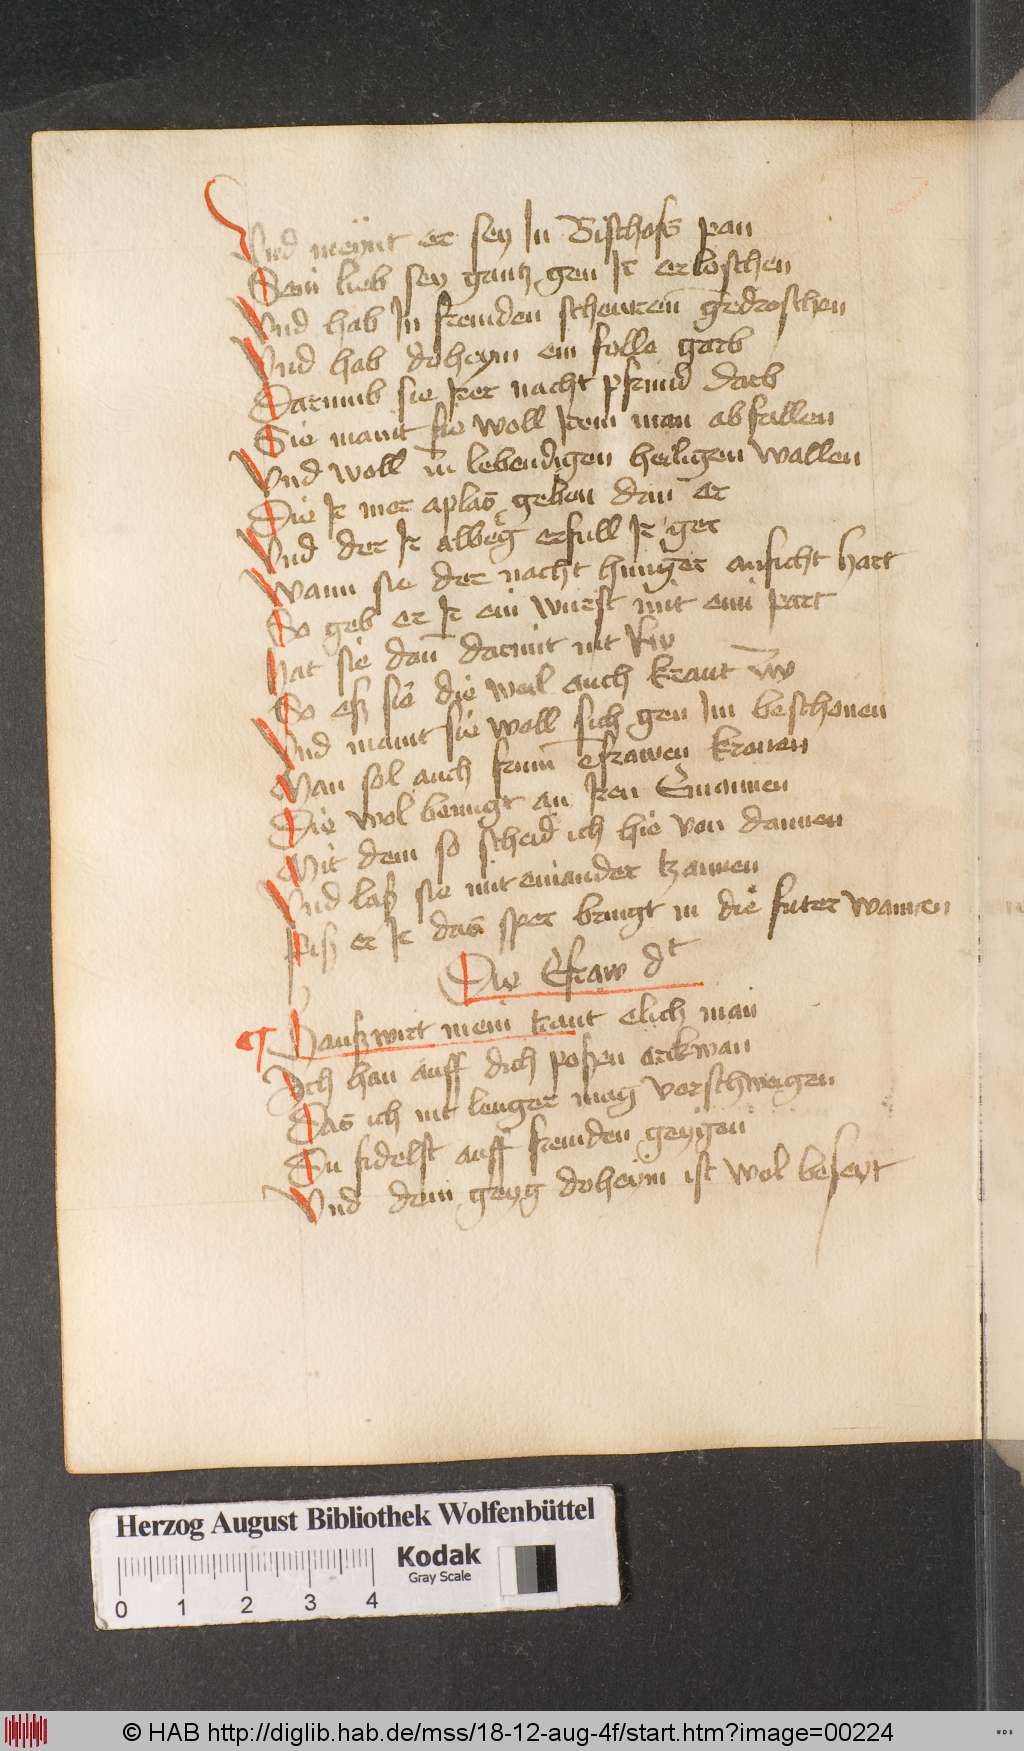 Vnd meynt er sey In Bischofs pan
Sein lieb sey gantz gen Ir erloschen
Vnd hab In fremden scheuren gedroschen
Vnd hab doheym ein folle garb
Darumb sie Irer nacht pfrund darb
Sie maint sie woll Irem man abfallen
Vnd woll zu lebendigen heiligen wallen
Die Ir mer aplas geben dan er
Vnd der Ir albeg erfull Ir ger
Wann sie der nacht hunger anficht hart
So geb er Ir ein wurst mit eim part
Hat sie dan darmit nit rw
So eß sie die weil auch kraut
Vnd maint sie woll sich gen Im beschonen
Man sol auch frum efrawen kronen
Die wol benugt an Iren Emannen
Mit dem so scheid ich hie von dannen
Vnd laß sie mit einander tzannen
Piß er Ir das sper bringt in die futer wannen
Die Efraw dt
Haußwirt mein traut elich man
Ich han auff dich poßen arckwan
Das ich nit lenger mag verschweigen
Du fidelst auff fremden geygen
Vnd dein geyg doheym ist wol beseyt
Herzog August Bibliothek Wolfenbüttel
Kodak
Gray Scale
0 1 2 3 4
© HAB http://diglib.hab.de/mss/18-12-aug-4f/start.htm?image=00224